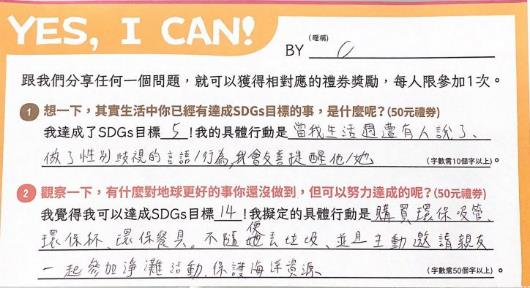 YES, I CAN!
BY (暱稱) C
跟我們分享任何一個問題，就可以獲得相對應的禮券獎勵，每人限參加1次。
1 想一下，其實生活中你已經有達成SDGs目標的事，是什麼呢？(50元禮券)
我達成了SDGs目標 5 !我的具體行動是 當我生活周遭有人說了、
做了性別歧視的言語/行為,我會友善提醒他/她 (字數需10個字以上)。
2 觀察一下，有什麼對地球更好的事你還沒做到，但可以努力達成的呢？(50元禮券)
我覺得我可以達成SDGs目標 14 !我擬定的具體行動是 購買環保吸管、
環保杯、環保餐具。不隨便丟垃圾、並且主動邀請親友
一起參加淨灘活動、保護海洋資源 (字數需50個字以上)。